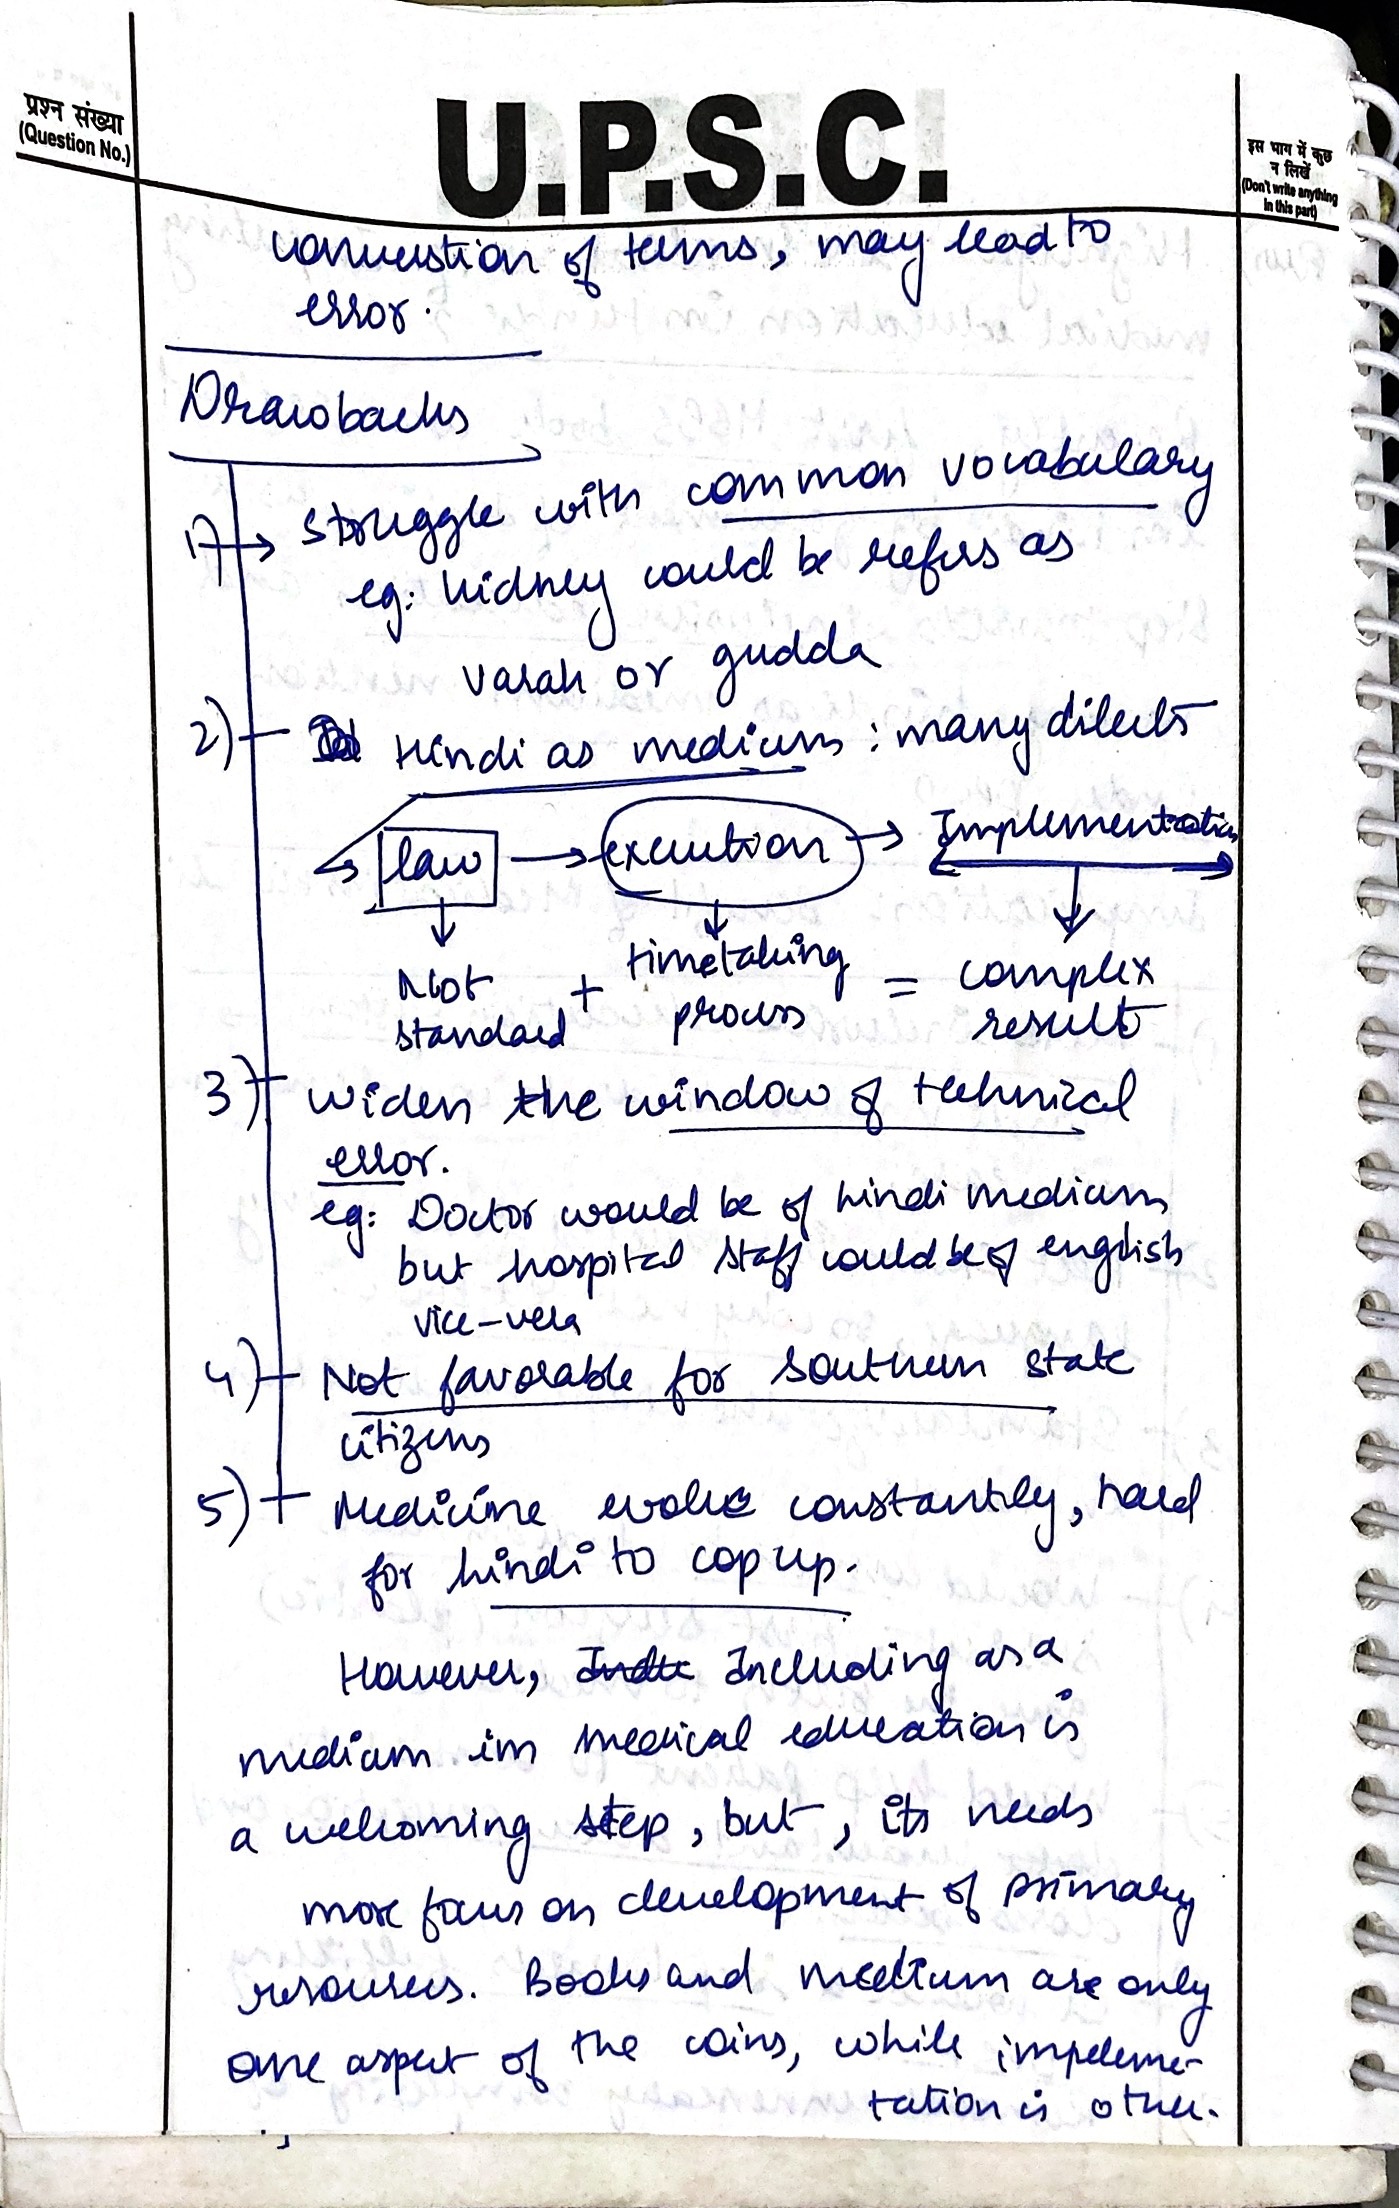 प्रश्न संख्या
(Question No.)
U.P.S.C.
इस भाग में कुछ
न लिखें
(Don't write anything
in this part)
conversion of terms, may lead to
error.
Drawbacks
1) → struggle with common vocabulary
eg: kidney could be refers as
varak or gudda
2) Hindi as medium : many dilects
law → execution → Implementation
Not + timetaking = complex
standard process result
3) widen the window of technical
error.
eg: Doctor would be of hindi medium
but hospital staff could be of english
vice-vera
4) Not favorable for southern state
citizens
5) Medicine evolve constantily, hard
for hindi to cop up.
However, Including as a
medium in medical education is
a welcoming step, but, its needs
more focus on development of primary
resources. Books and medium are only
one aspect of the coins, while impleme-
tation is other.